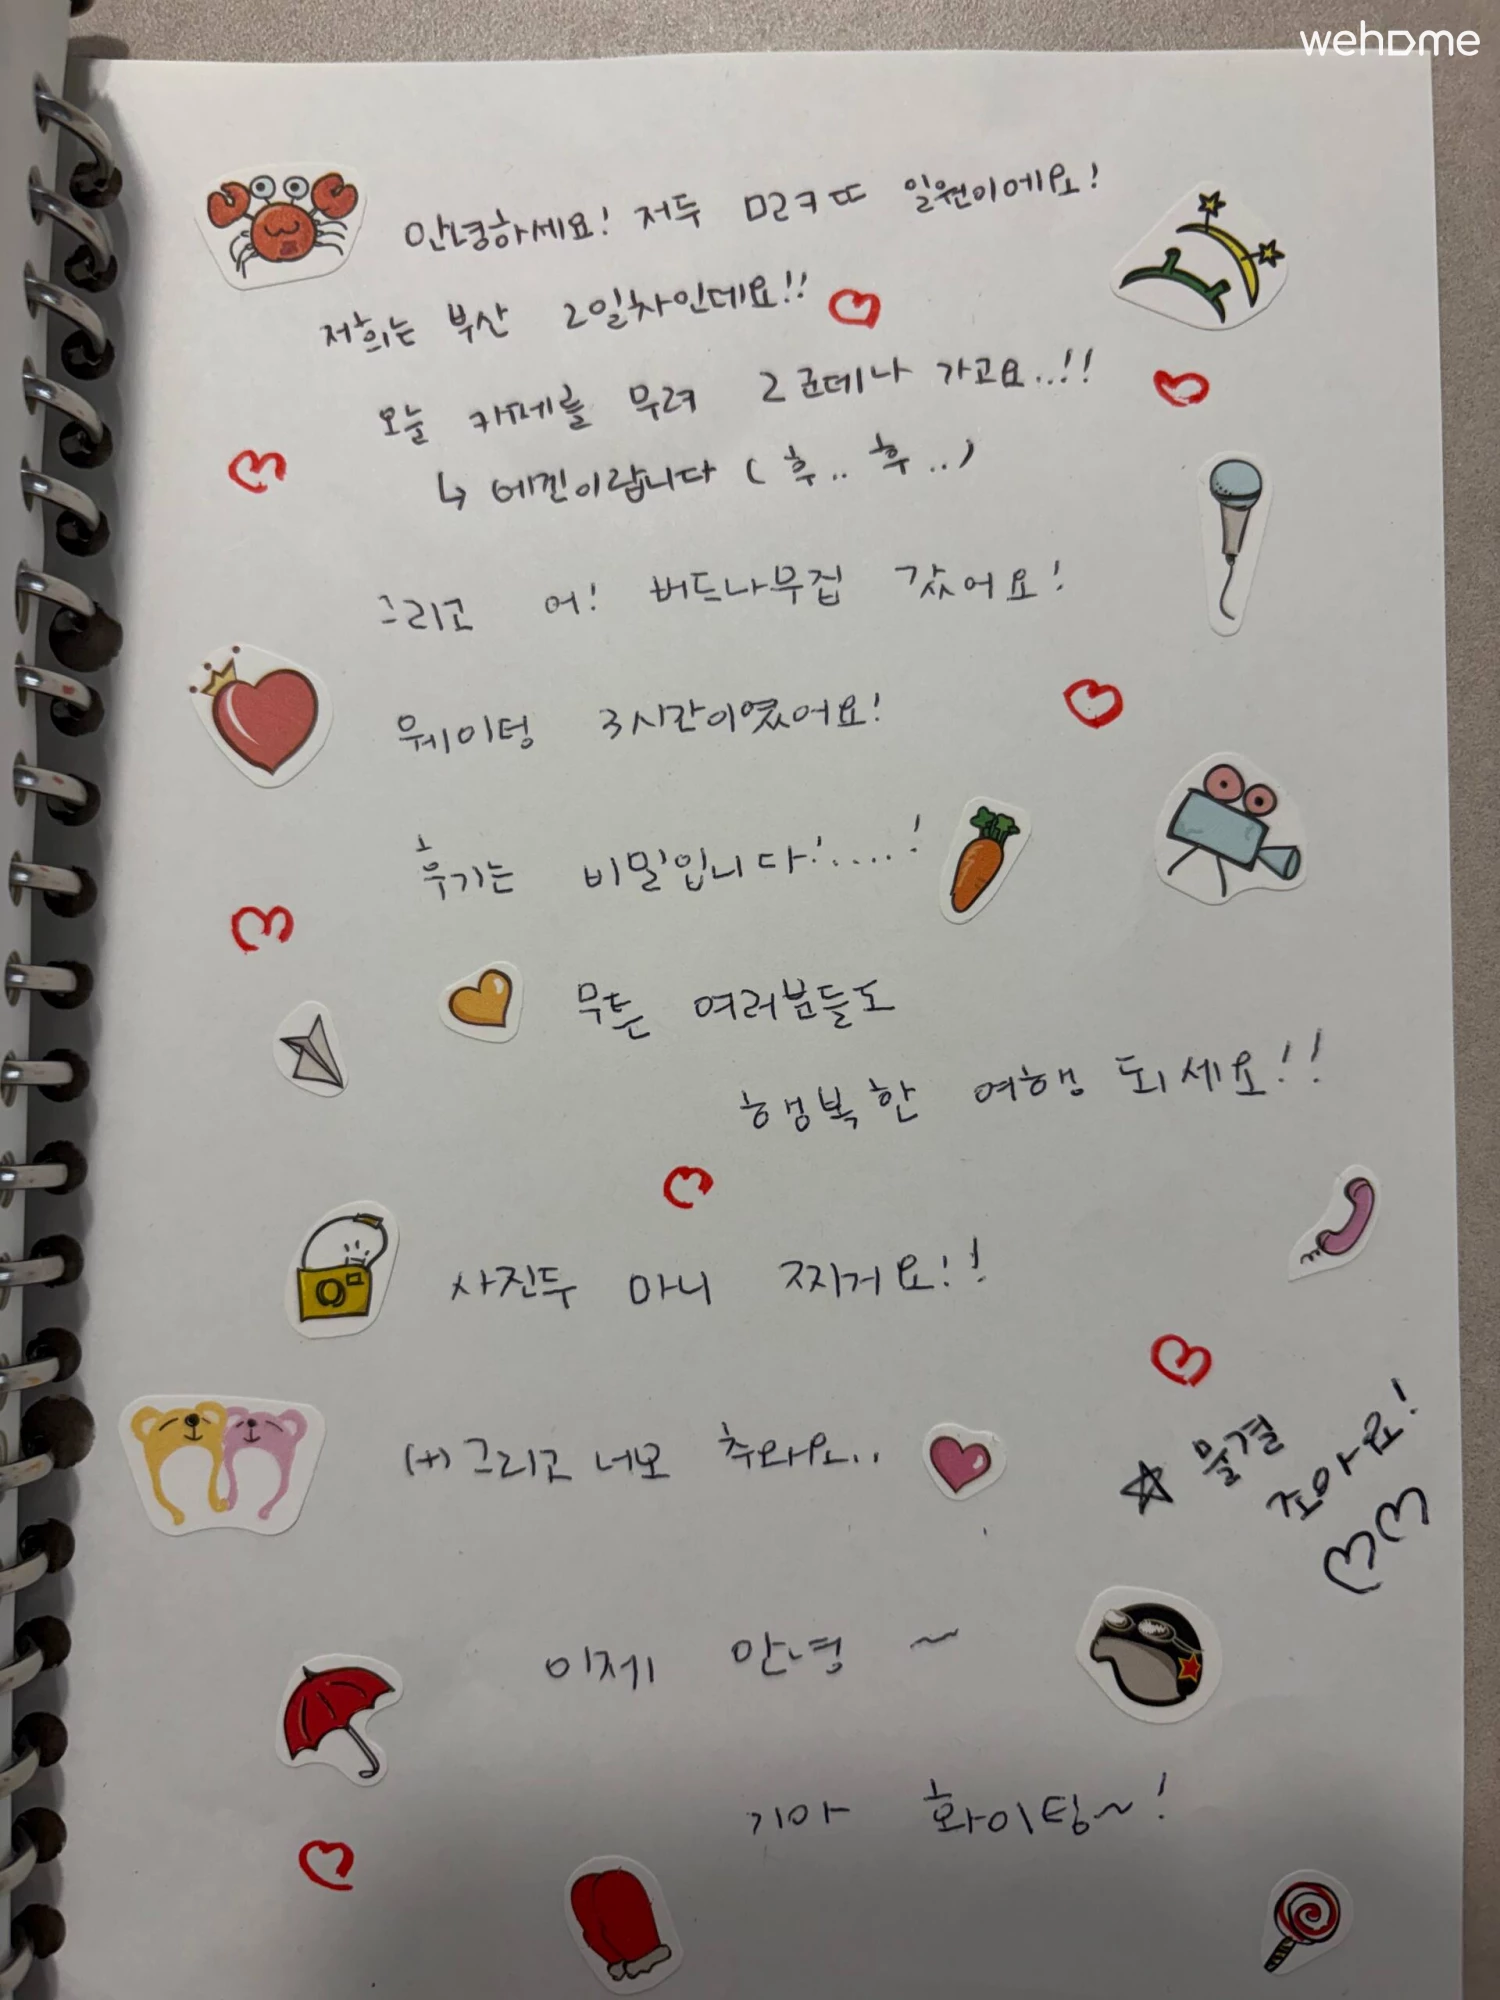 wehome
안녕하세요! 저두 ㅁㄹㅋㄸ 일원이에요!
저희는 부산 2일차인데요!!
오눌 카페를 무려 2군데나 가고요..!!
↳ 에낀이랍니다 (후.. 후..)
그리고 어! 버드나무집 갔어요!
웨이팅 3시간이였어요!
후기는 비밀입니다!....!
무튼 여러분들도
행복한 여행 되세요!!
사진두 마니 찌거요!!
(+) 그리고 너모 추와요..
☆ 물결
조아요!
이제 안녕 ~
기아 화이팅~!